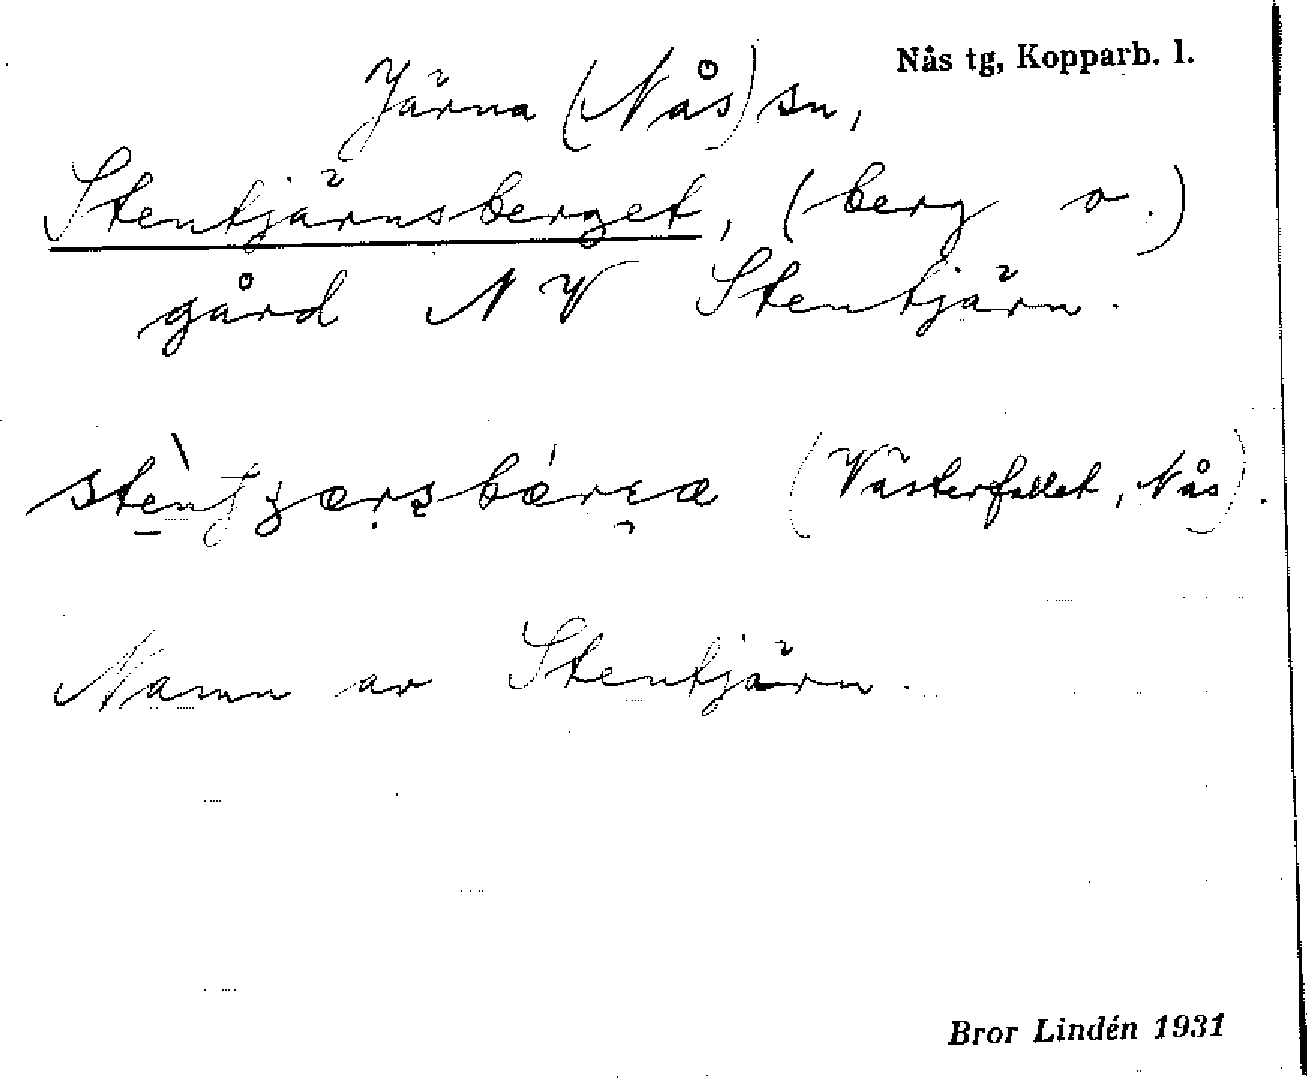 Nås tg, Kopparb. l.
Järna (Nås) sn,
Stentjärnsberget, (berg o.)
gård NV Stentjärn.
(Västerfallet, Nås).
Namn av Stentjärn.
Bror Lindén 1931